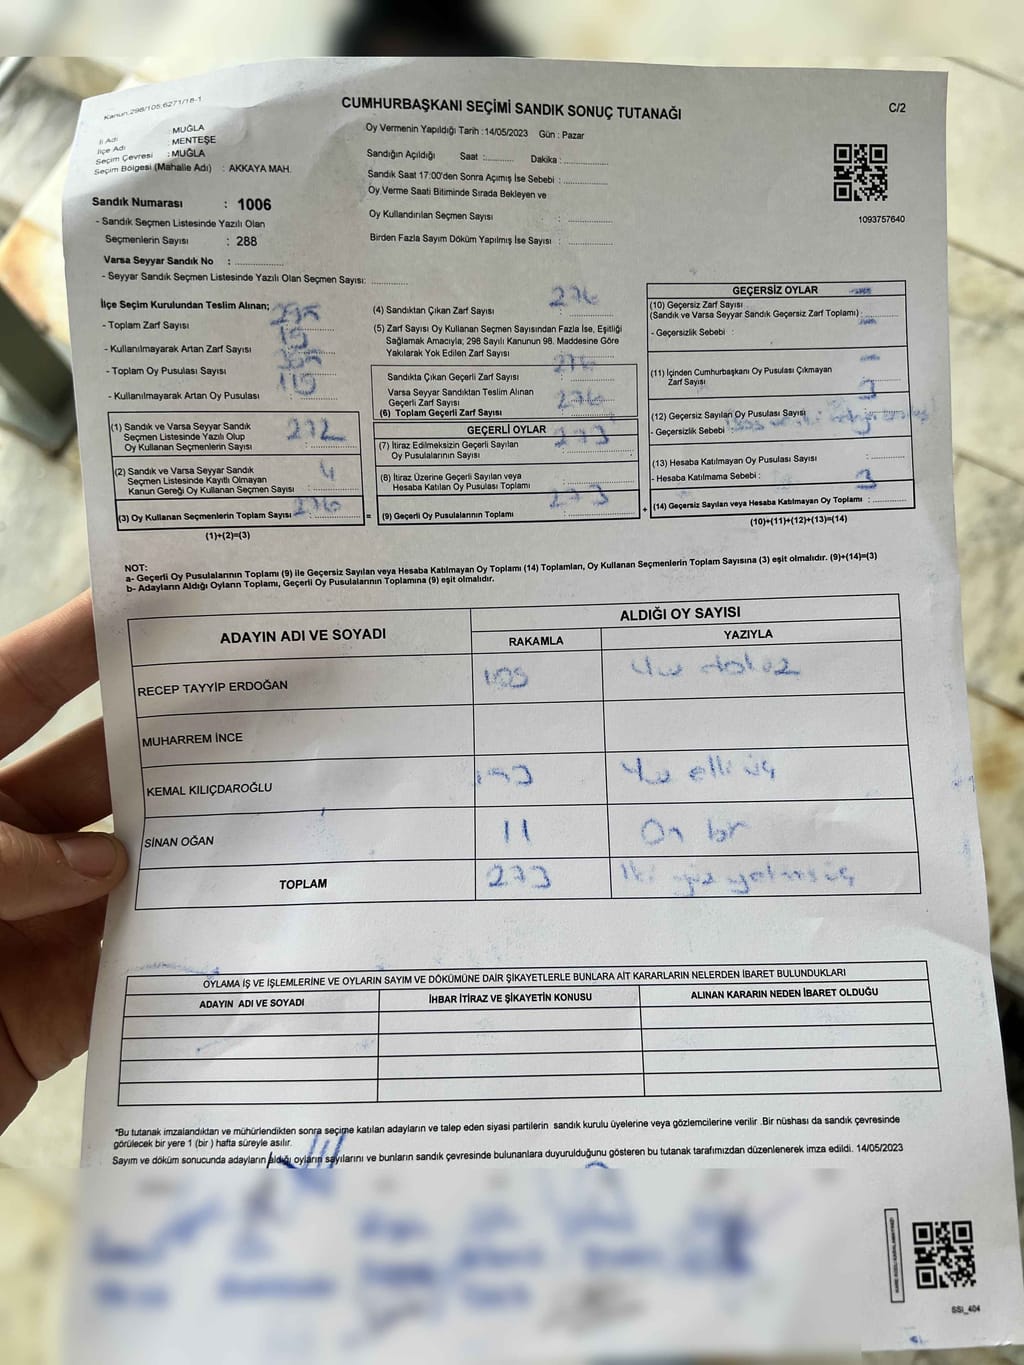 Kanun:298/105,6271/18-1
CUMHURBAŞKANI SEÇİMİ SANDIK SONUÇ TUTANAĞI
C/2
İl Adı : MUĞLA
İlçe Adı : MENTEŞE
Seçim Çevresi : MUĞLA
Seçim Bölgesi (Mahalle Adı) : AKKAYA MAH.
Sandık Numarası : 1006
- Sandık Seçmen Listesinde Yazılı Olan
Seçmenlerin Sayısı : 288
Varsa Seyyar Sandık No : ..............
- Seyyar Sandık Seçmen Listesinde Yazılı Olan Seçmen Sayısı: ..............
Oy Vermenin Yapıldığı Tarih :14/05/2023 Gün : Pazar
Sandığın Açıldığı Saat :.......... Dakika :..............
Sandık Saat 17:00'den Sonra Açımış İse Sebebi : ..............
Oy Verme Saati Bitiminde Sırada Bekleyen ve
Oy Kullandırılan Seçmen Sayısı : ..............
Birden Fazla Sayım Döküm Yapılmış İse Sayısı : ..............
1093757640
İlçe Seçim Kurulundan Teslim Alınan;
- Toplam Zarf Sayısı
- Kullanılmayarak Artan Zarf Sayısı 15
- Toplam Oy Pusulası Sayısı
- Kullanılmayarak Artan Oy Pusulası
(1) Sandık ve Varsa Seyyar Sandık
Seçmen Listesinde Yazılı Olup
Oy Kullanan Seçmenlerin Sayısı 272
(2) Sandık ve Varsa Seyyar Sandık
Seçmen Listesinde Kayıtlı Olmayan
Kanun Gereği Oy Kullanan Seçmen Sayısı 4
(3) Oy Kullanan Seçmenlerin Toplam Sayısı 276
(1)+(2)=(3)
=
(4) Sandıktan Çıkan Zarf Sayısı 276
(5) Zarf Sayısı Oy Kullanan Seçmen Sayısından Fazla İse, Eşitliği
Sağlamak Amacıyla; 298 Sayılı Kanunun 98. Maddesine Göre
Yakılarak Yok Edilen Zarf Sayısı
Sandıkta Çıkan Geçerli Zarf Sayısı 276
Varsa Seyyar Sandıktan Teslim Alınan
Geçerli Zarf Sayısı
(6) Toplam Geçerli Zarf Sayısı 276
GEÇERLİ OYLAR
(7) İtiraz Edilmeksizin Geçerli Sayılan
Oy Pusulalarının Sayısı 273
(8) İtiraz Üzerine Geçerli Sayılan veya
Hesaba Katılan Oy Pusulası Toplamı
(9) Geçerli Oy Pusulalarının Toplamı 273
+
GEÇERSİZ OYLAR
(10) Geçersiz Zarf Sayısı
(Sandık ve Varsa Seyyar Sandık Geçersiz Zarf Toplamı) :
- Geçersizlik Sebebi :
(11) İçinden Cumhurbaşkanı Oy Pusulası Çıkmayan
Zarf Sayısı
(12) Geçersiz Sayılan Oy Pusulası Sayısı 3
- Geçersizlik Sebebi
(13) Hesaba Katılmayan Oy Pusulası Sayısı
- Hesaba Katılmama Sebebi :
(14) Geçersiz Sayılan veya Hesaba Katılmayan Oy Toplamı : 3
(10)+(11)+(12)+(13)=(14)
NOT:
a- Geçerli Oy Pusulalarının Toplamı (9) ile Geçersiz Sayılan veya Hesaba Katılmayan Oy Toplamı (14) Toplamları, Oy Kullanan Seçmenlerin Toplam Sayısına (3) eşit olmalıdır. (9)+(14)=(3)
b- Adayların Aldığı Oyların Toplamı, Geçerli Oy Pusulalarının Toplamına (9) eşit olmalıdır.
ADAYIN ADI VE SOYADI
ALDIĞI OY SAYISI
RAKAMLA YAZIYLA
RECEP TAYYİP ERDOĞAN 109 Yüz dokuz
MUHARREM İNCE
KEMAL KILIÇDAROĞLU 153 Yüz elli üç
SİNAN OĞAN 11 On bir
TOPLAM 273 İki yüz yetmiş üç
OYLAMA İŞ VE İŞLEMLERİNE VE OYLARIN SAYIM VE DÖKÜMÜNE DAİR ŞİKAYETLERLE BUNLARA AİT KARARLARIN NELERDEN İBARET BULUNDUKLARI
ADAYIN ADI VE SOYADI İHBAR İTİRAZ VE ŞİKAYETİN KONUSU ALINAN KARARIN NEDEN İBARET OLDUĞU
*Bu tutanak imzalandıktan ve mühürlendikten sonra seçime katılan adayların ve talep eden siyasi partilerin sandık kurulu üyelerine veya gözlemcilerine verilir .Bir nüshası da sandık çevresinde
görülecek bir yere 1 (bir ) hafta süreyle asılır.
Sayım ve döküm sonucunda adayların aldığı oyların sayılarını ve bunların sandık çevresinde bulunanlara duyurulduğunu gösteren bu tutanak tarafımızdan düzenlenerek imza edildi. 14/05/2023
SSI_404